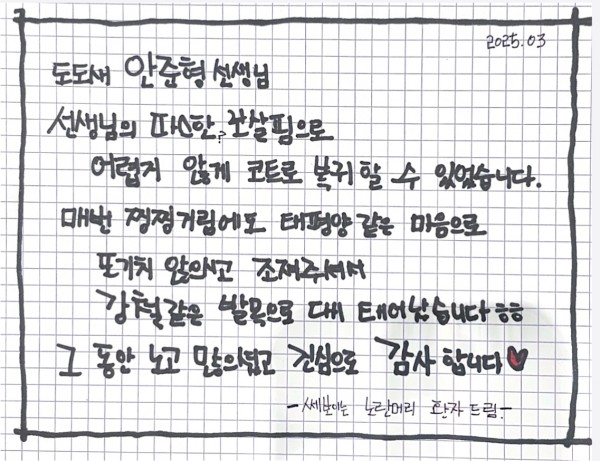 2025.03
도도새 안준형 선생님
선생님의 따스한? 보살핌으로
어렵지 않게 코트로 복귀할 수 있었습니다.
매번 찡찡거림에도 태평양같은 마음으로
포기치 않으시고 조져주셔서
강철같은 발목으로 다시 태어났습니다ㅎㅎ
그 동안 노고 많으셨고 진심으로 감사합니다
노란머리 환자 드림.-